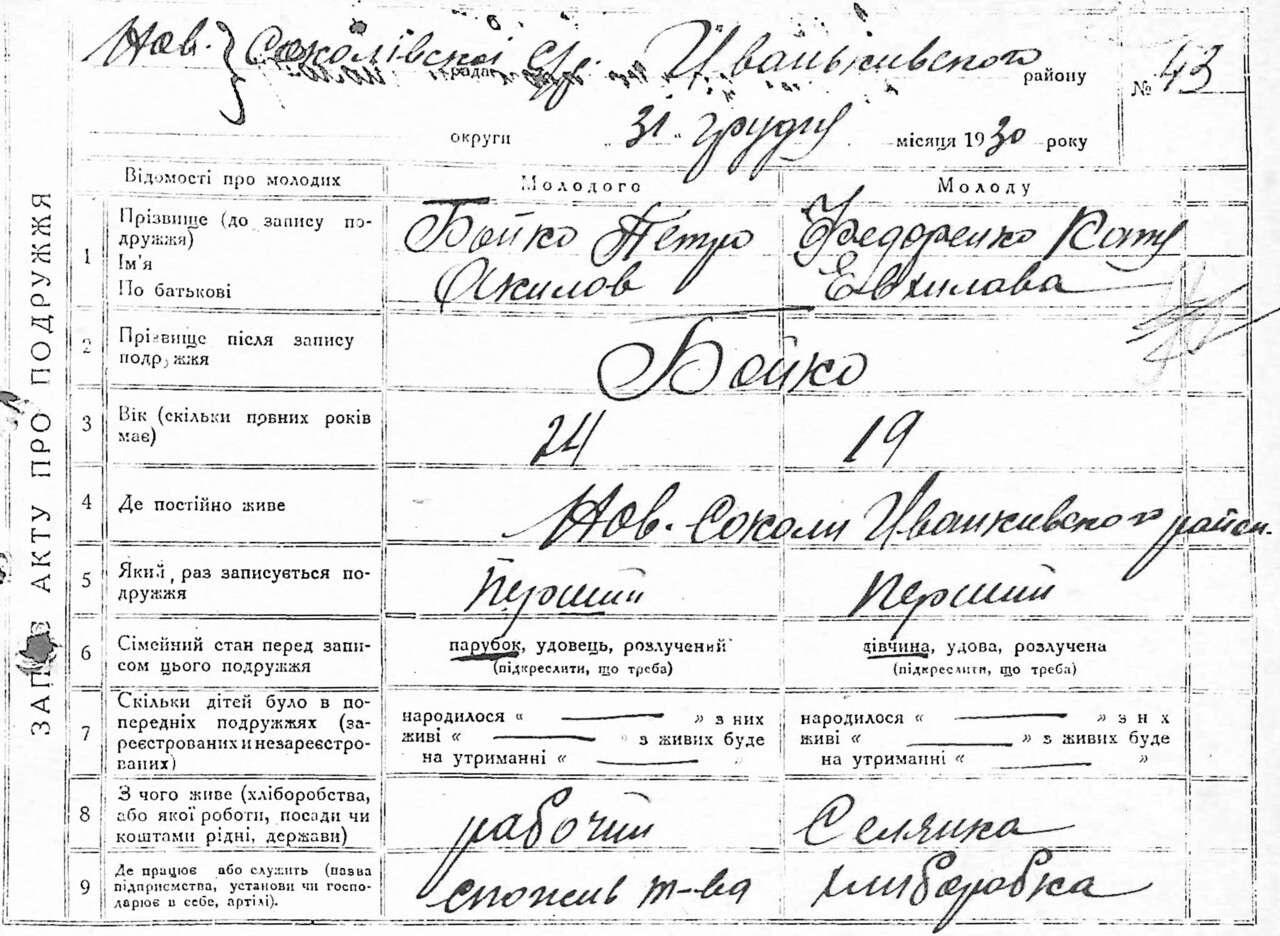 Нов. Соколівскої с/р. Иванькивского
рада району № 43
округи „ 31 “ грудня місяця 1930 року
ЗАПИС АКТУ ПРО ПОДРУЖЖЯ
Відомості про молодих Молодого Молоду
1 Прізвище (до запису по-
дружжя)
Ім'я
По батькові
Бойко Петро
Акилов
Федоренко Кат
Евхилава
2 Прізвище після запису
подружжя
Бойко
3 Вік (скільки повних років
має)
24 19
4 Де постійно живе
Нов. Соколи Иванкивского район.
5 Який раз записується по-
дружжя
Перший Перший
6 Сімейний стан перед запи-
сом цього подружжя
парубок, удовець, розлучений
(підкреслити, що треба)
дівчина, удова, розлучена
(підкреслити, що треба)
7 Скільки дітей було в по-
передніх подружжях (за-
реєстрованих и незареєстро-
ваних)
народилося « » з них
живі « » з живих буде
на утриманні « »
народилося « » з н х
живі « » з живих буде
на утриманні « »
8 З чого живе (хліборобства,
або якої роботи, посади чи
коштами рідні, держави)
рабочий Селянка
9 Де працює або служить (назва
підприємства, установи чи госпо-
дарює в себе, артілі).
спожив т-ва хлиборобка